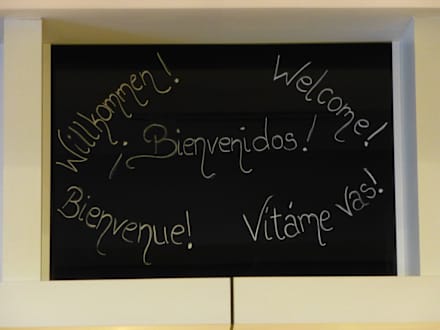 Willkommen!
Welcome!
¡Bienvenidos!
Bienvenue!
Vítáme vas!